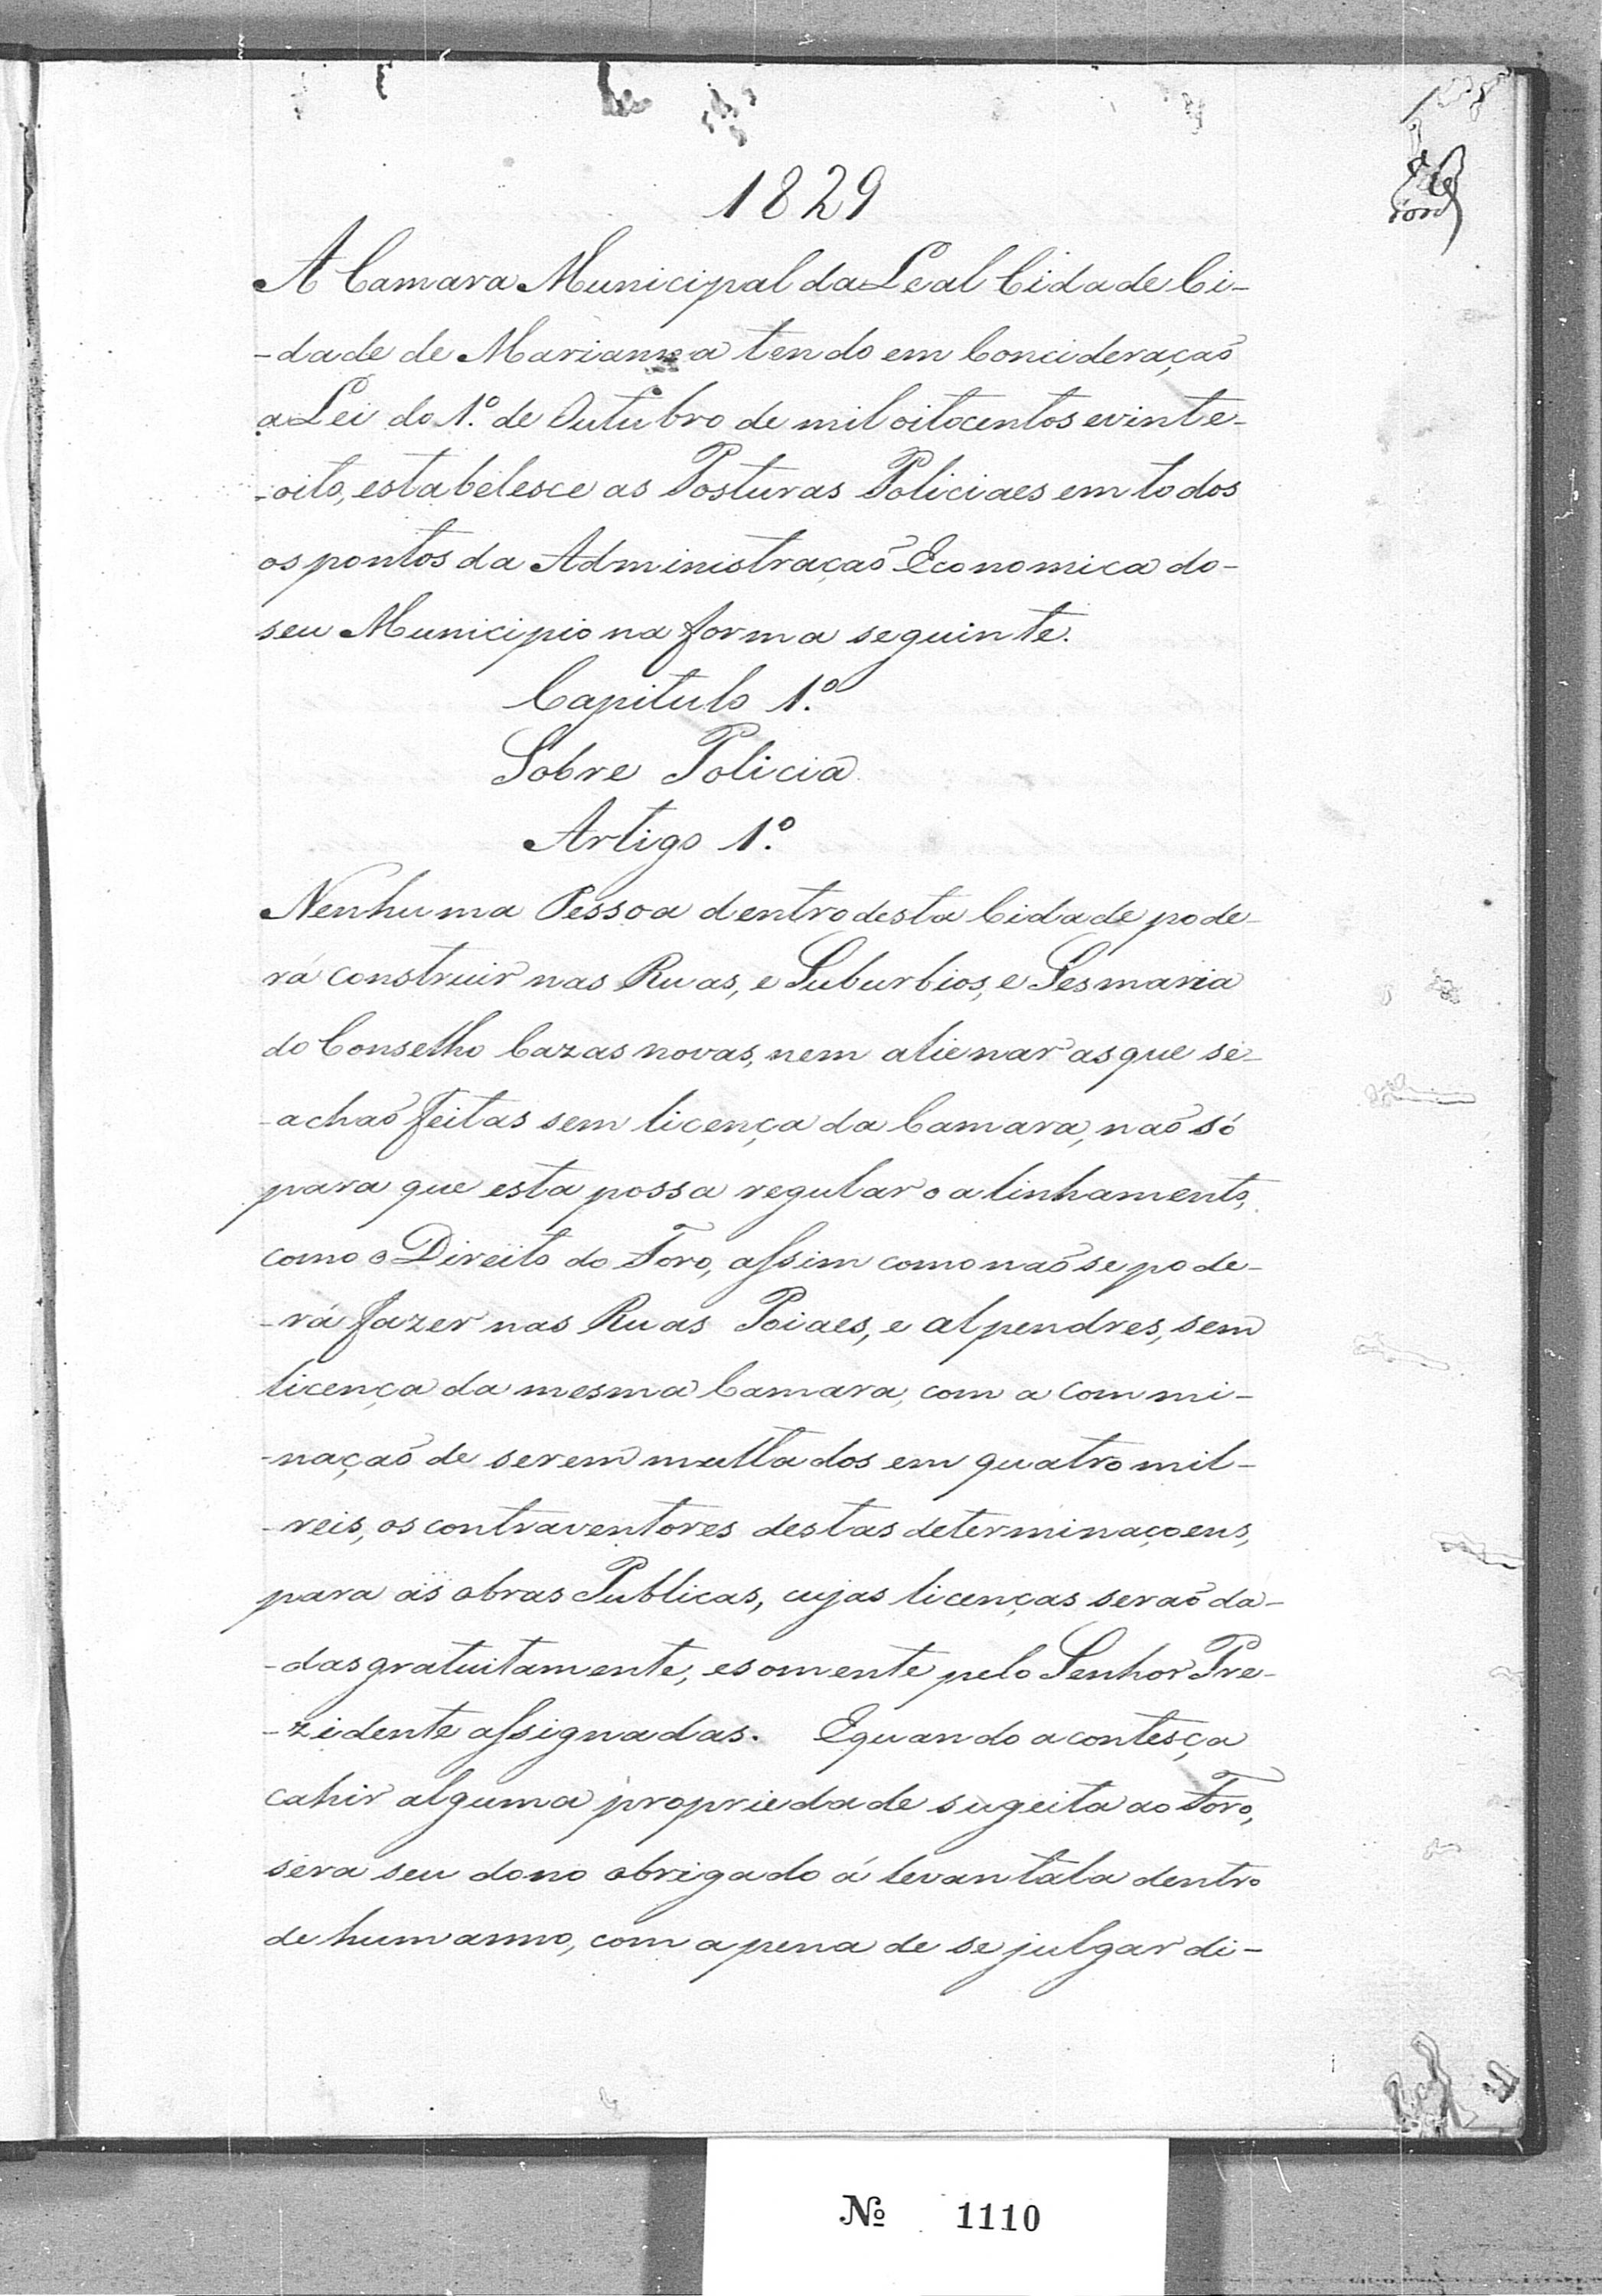 1829
A Camara Municipal da Leal Cidade Ci-
-dade de Marianna tendo em Concideraçaõ
a Lei do 1.º de Outubro de mil oitocentos evinte-
-oito, estabelesce as Posturas Policiaes em todos
os pontos da Administraçaõ Economica do-
seu Municipio na forma seguinte.
Capitulo 1.º
Sobre Policia
Artigo 1.º
Nenhuma Pessoa dentro desta Cidade pode-
rá construir nas Ruas, e Suburbios, e Sesmaria
do Conselho Cazas novas, nem alienar as que se-
-achaõ feitas sem licença da Camara, naõ só
para que esta possa regular o alinhamento,
como o Direito do Foro, assim como naõ se pode-
-rá fazer nas Ruas Poiaes, e alpendres, sem
licença da mesma Camara, com a commi-
-naçaõ de serem multados em quatro mil-
-reis, os contraventores destas determinaçoens,
para as obras Publicas, cujas licenças seraõ da-
-das gratuitamente, e somente pelo Senhor Pre-
-zidente assignadas. E quando acontesça
cahir alguma propriedade sugeita ao Foro,
sera seu dono obrigado á levantala dentro
de hum anno, com a pena de se julgar di-
Nº 1110